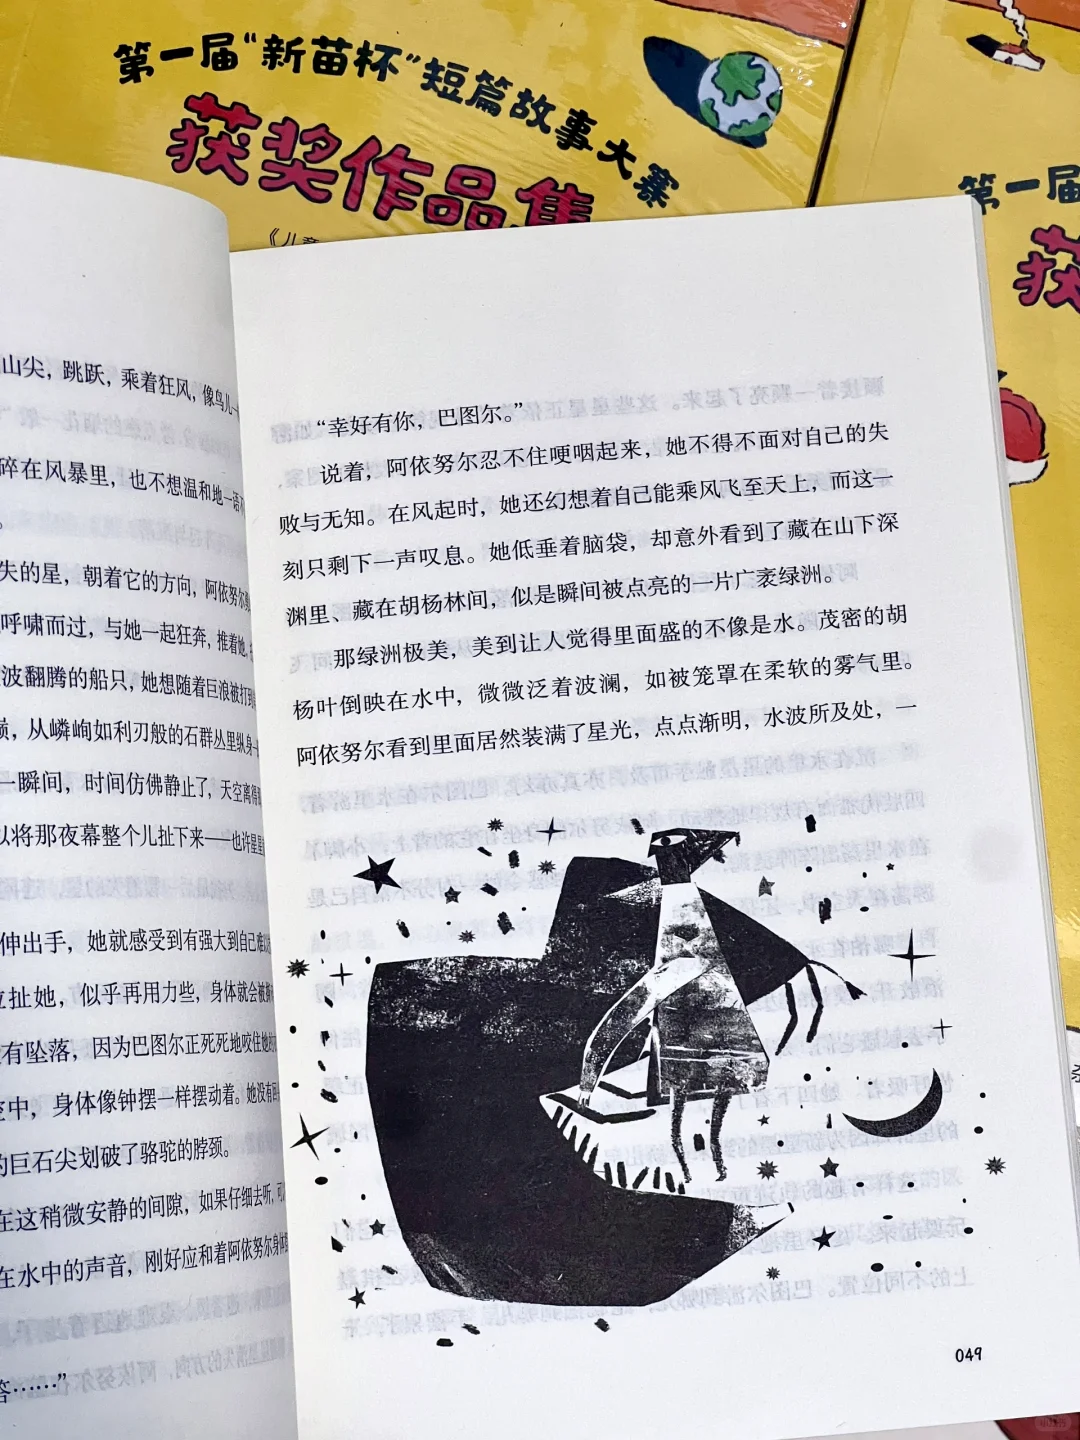 第一届“新苗杯”短篇故事大赛
获奖作品集
《儿童
第一届
获
山尖，跳跃，乘着狂风，像鸟儿一
碎在风暴里，也不想温和地一语不
失的星，朝着它的方向，阿依努尔
呼啸而过，与她一起狂奔，推着她，
波翻腾的船只，她想随着巨浪被打到
巅，从嶙峋如利刃般的石群丛里纵身一
一瞬间，时间仿佛静止了，天空离得
以将那夜幕整个儿扯下来——也许星星
伸出手，她就感受到有强大到自己难以
拉扯她，似乎再用力些，身体就会被
有坠落，因为巴图尔正死死地咬住她的
空中，身体像钟摆一样摆动着。她没有
的巨石尖划破了骆驼的脖颈。
在这稍微安静的间隙，如果仔细去听，可
在水中的声音，刚好应和着阿依努尔身体
答……”
“幸好有你，巴图尔。”
说着，阿依努尔忍不住哽咽起来，她不得不面对自己的失
败与无知。在风起时，她还幻想着自己能乘风飞至天上，而这一
刻只剩下一声叹息。她低垂着脑袋，却意外看到了藏在山下深
渊里、藏在胡杨林间，似是瞬间被点亮的一片广袤绿洲。
那绿洲极美，美到让人觉得里面盛的不像是水。茂密的胡
杨叶倒映在水中，微微泛着波澜，如被笼罩在柔软的雾气里。
阿依努尔看到里面居然装满了星光，点点渐明，水波所及处，一
049